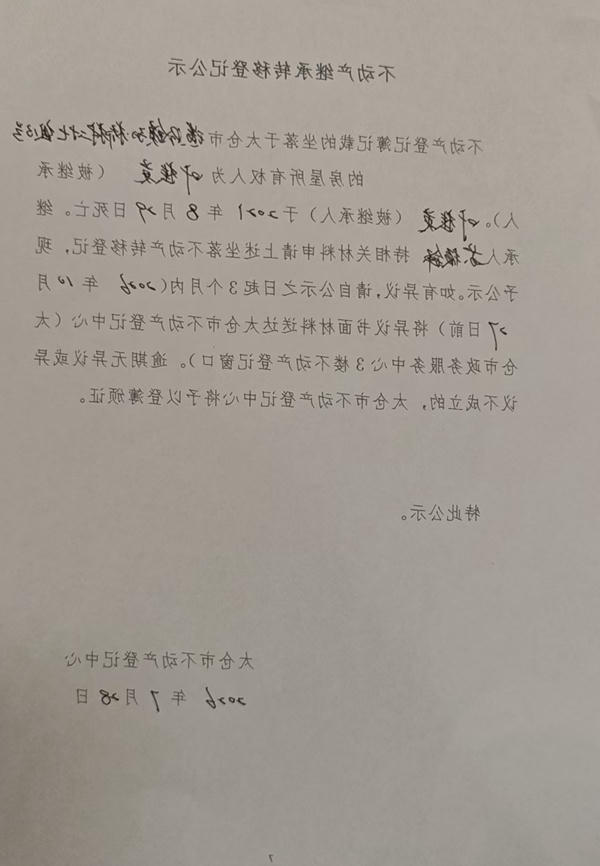 不动产继承转移登记公示
不动产登记簿记载的坐落于太仓市 镇 组13号
的房屋所有权人为 （被继承
人）。 （被继承人）于 2021 年 8 月 29 日死亡。继
承人 持相关材料申请上述坐落不动产转移登记，现
予公示。如有异议，请自公示之日起3个月内（2026 年 10 月
27 日前）将异议书面材料送达太仓市不动产登记中心（太
仓市政务服务中心3楼不动产登记窗口）。逾期无异议或异
议不成立的，太仓市不动产登记中心将予以登簿颁证。
特此公示。
太仓市不动产登记中心
2026 年 7 月 28 日
7